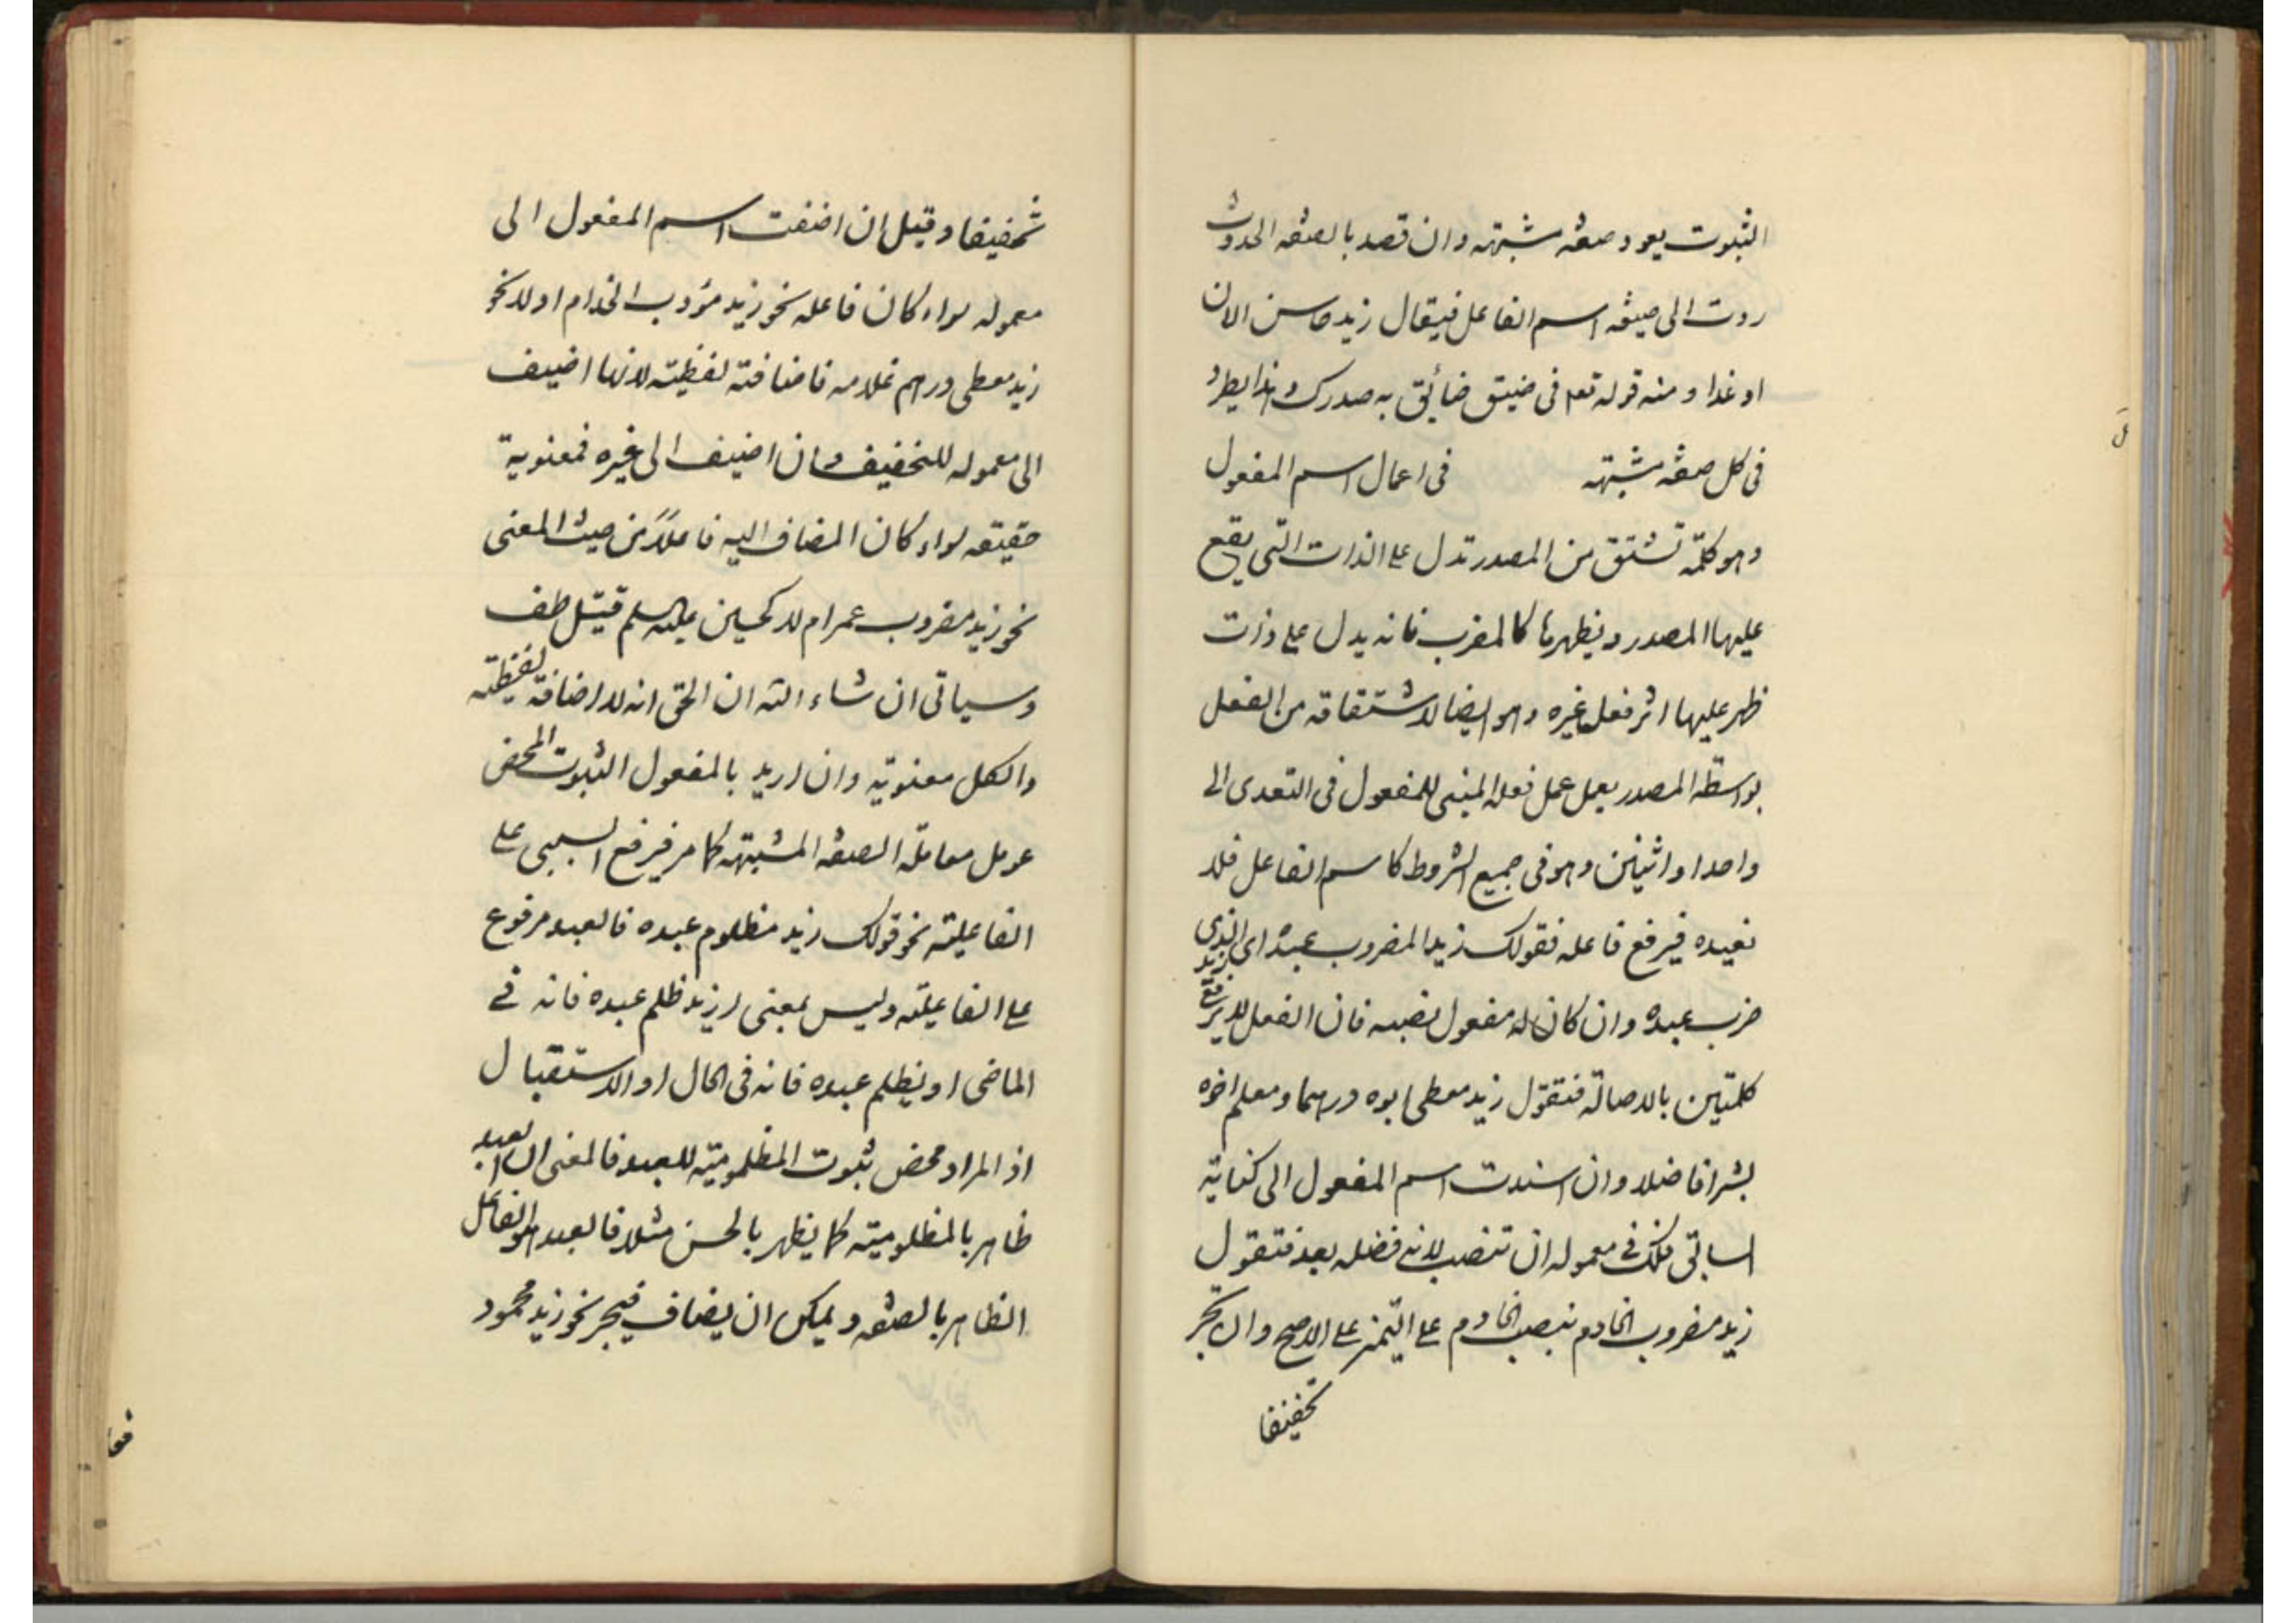 الثبوت يعود صفة مشبهة وان قصد بالصفة الحدوث
ردت الى صيغة اسم الفاعل فيقال زيد حاسن الان
او غدا و منه قوله تعم فى ضيق ضائق به صدرك و هذا يطرد
فى كل صفة مشبهة فى اعمال اسم المفعول
وهو كلمة تشتق من المصدر تدل على الذات التى يقع
عليها المصدر و يظهر بها كالمضرب فانه يدل على ذات
ظهر عليها اثر فعل غيره وهو ايضا لاشتقاقه من الفعل
بواسطة المصدر يعمل عمل فعله المبنى للمفعول فى التعدى الى
واحد او اثنين وهو فى جميع الشروط كاسم الفاعل فلا
نعيده فيرفع فاعله فقولك زيد المضروب عبده اى الذى
ضرب عبده وان كان له مفعول نصبه فان الفعل لا يرفع
كلمتين بالاصالة فتقول زيد معطى ابوه درهما و معلم اخوه
بشرا فاضلا وان اسندت اسم المفعول الى كناية
السابق فلك فى معموله ان تنصب لانه فضلة بعد فتقول
زيد مضروب الخادم بنصب الخادم على التميز على الاصح وان تجر
تخفيفا
تخفيفا وقيل ان اضفت اسم المفعول الى
معموله سواء كان فاعله نحو زيد مؤدب الخدام او لا نحو
زيد معطى درهم غلامه فاضافته لفظية لانها اضيف
الى معموله للتخفيف وان اضيف الى غيره فمعنوية
حقيقة سواء كان المضاف اليه فاعلا من حيث المعنى
نحو زيد مضروب عمر ام لا كحسين عليه السلم قتيل طف
وسياتى ان شاء الله ان الحق انه لا اضافة لفظية
والكل معنوية وان اريد بالمفعول الثبوت المحض
عومل معاملة الصفة المشبهة كما مر فيرفع السببى على
الفاعلية نحو قولك زيد مظلوم عبده فالعبد مرفوع
على الفاعلية وليس بمعنى زيد ظلم عبده فانه فى
الماضى او يظلم عبده فانه فى الحال او الاستقبال
اذ المراد محض ثبوت المظلومية للعبد فالمعنى ان العبد
ظاهر بالمظلومية كما يظهر بالحسن مثلا فالعبد هو الفاعل
الظاهر بالصفة و يمكن ان يضاف فيجر نحو زيد محمود